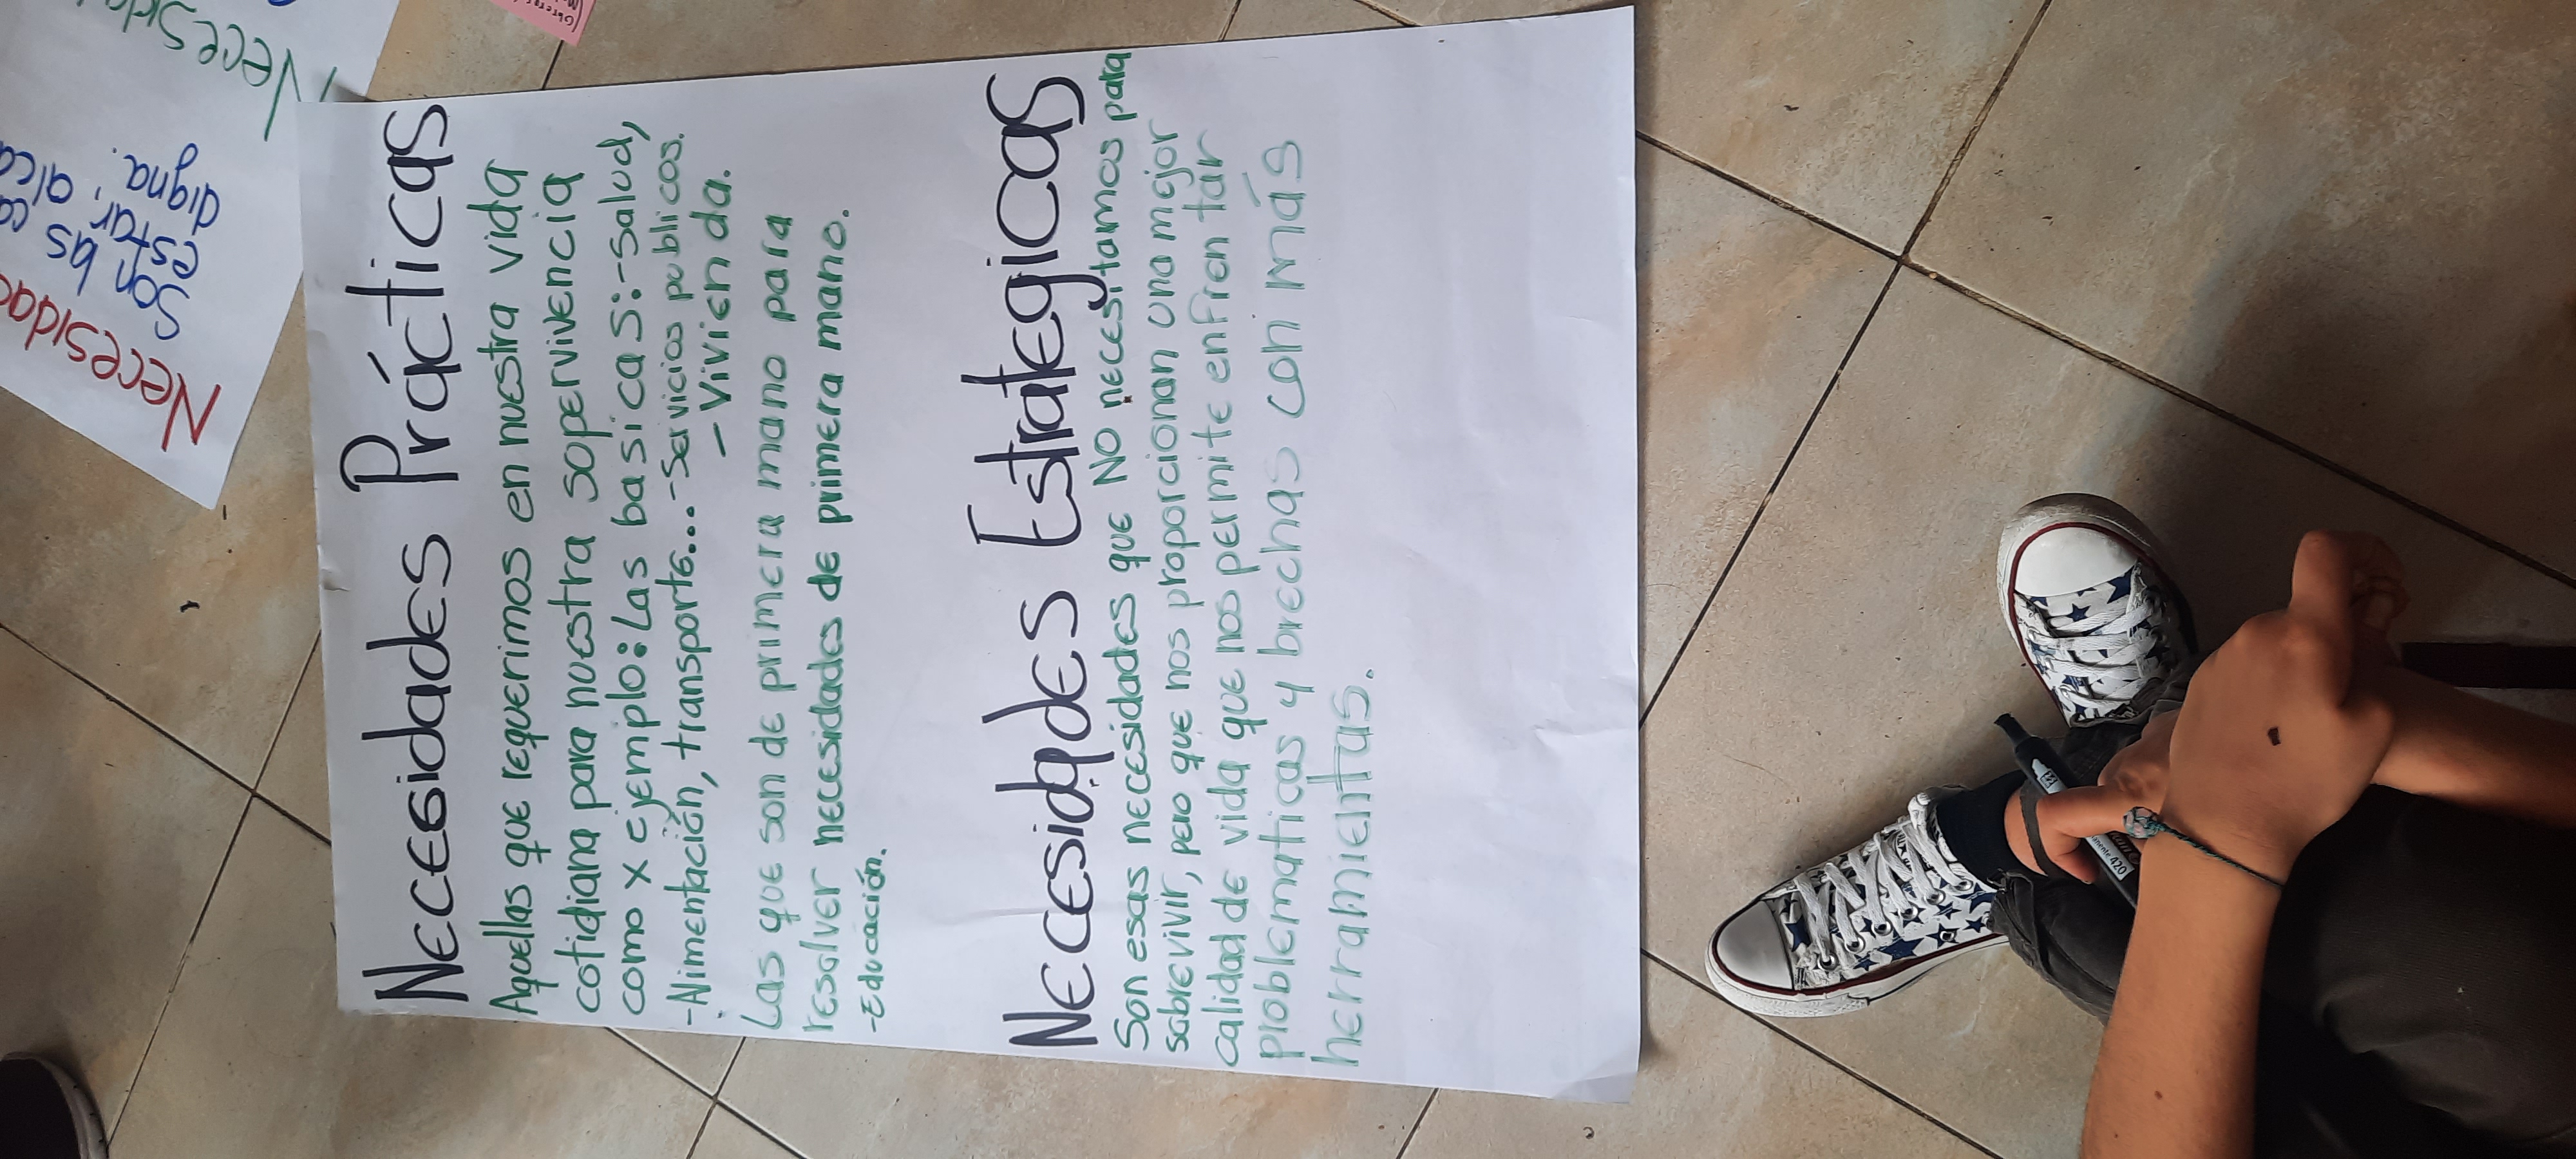 Necesidades Prácticas
Aquellas que requerimos en nuestra vida
cotidiana para nuestra supervivencia
como x ejemplo: Las basicas:-Salud,
-Alimentación, transporte...-Servicios publicos.
- Vivienda.
Las que son de primera mano para
resolver necesidades de primera mano.
-Educación.
Necesidades Estrategicas
Son esas necesidades que NO necesitamos para
sobrevivir, pero que nos proporcionan una mejor
calidad de vida que nos permite enfrentar
problematicas y brechas con más
herramientas.
Necesidad
Son las
estar, alca
digna.
Necesida
420